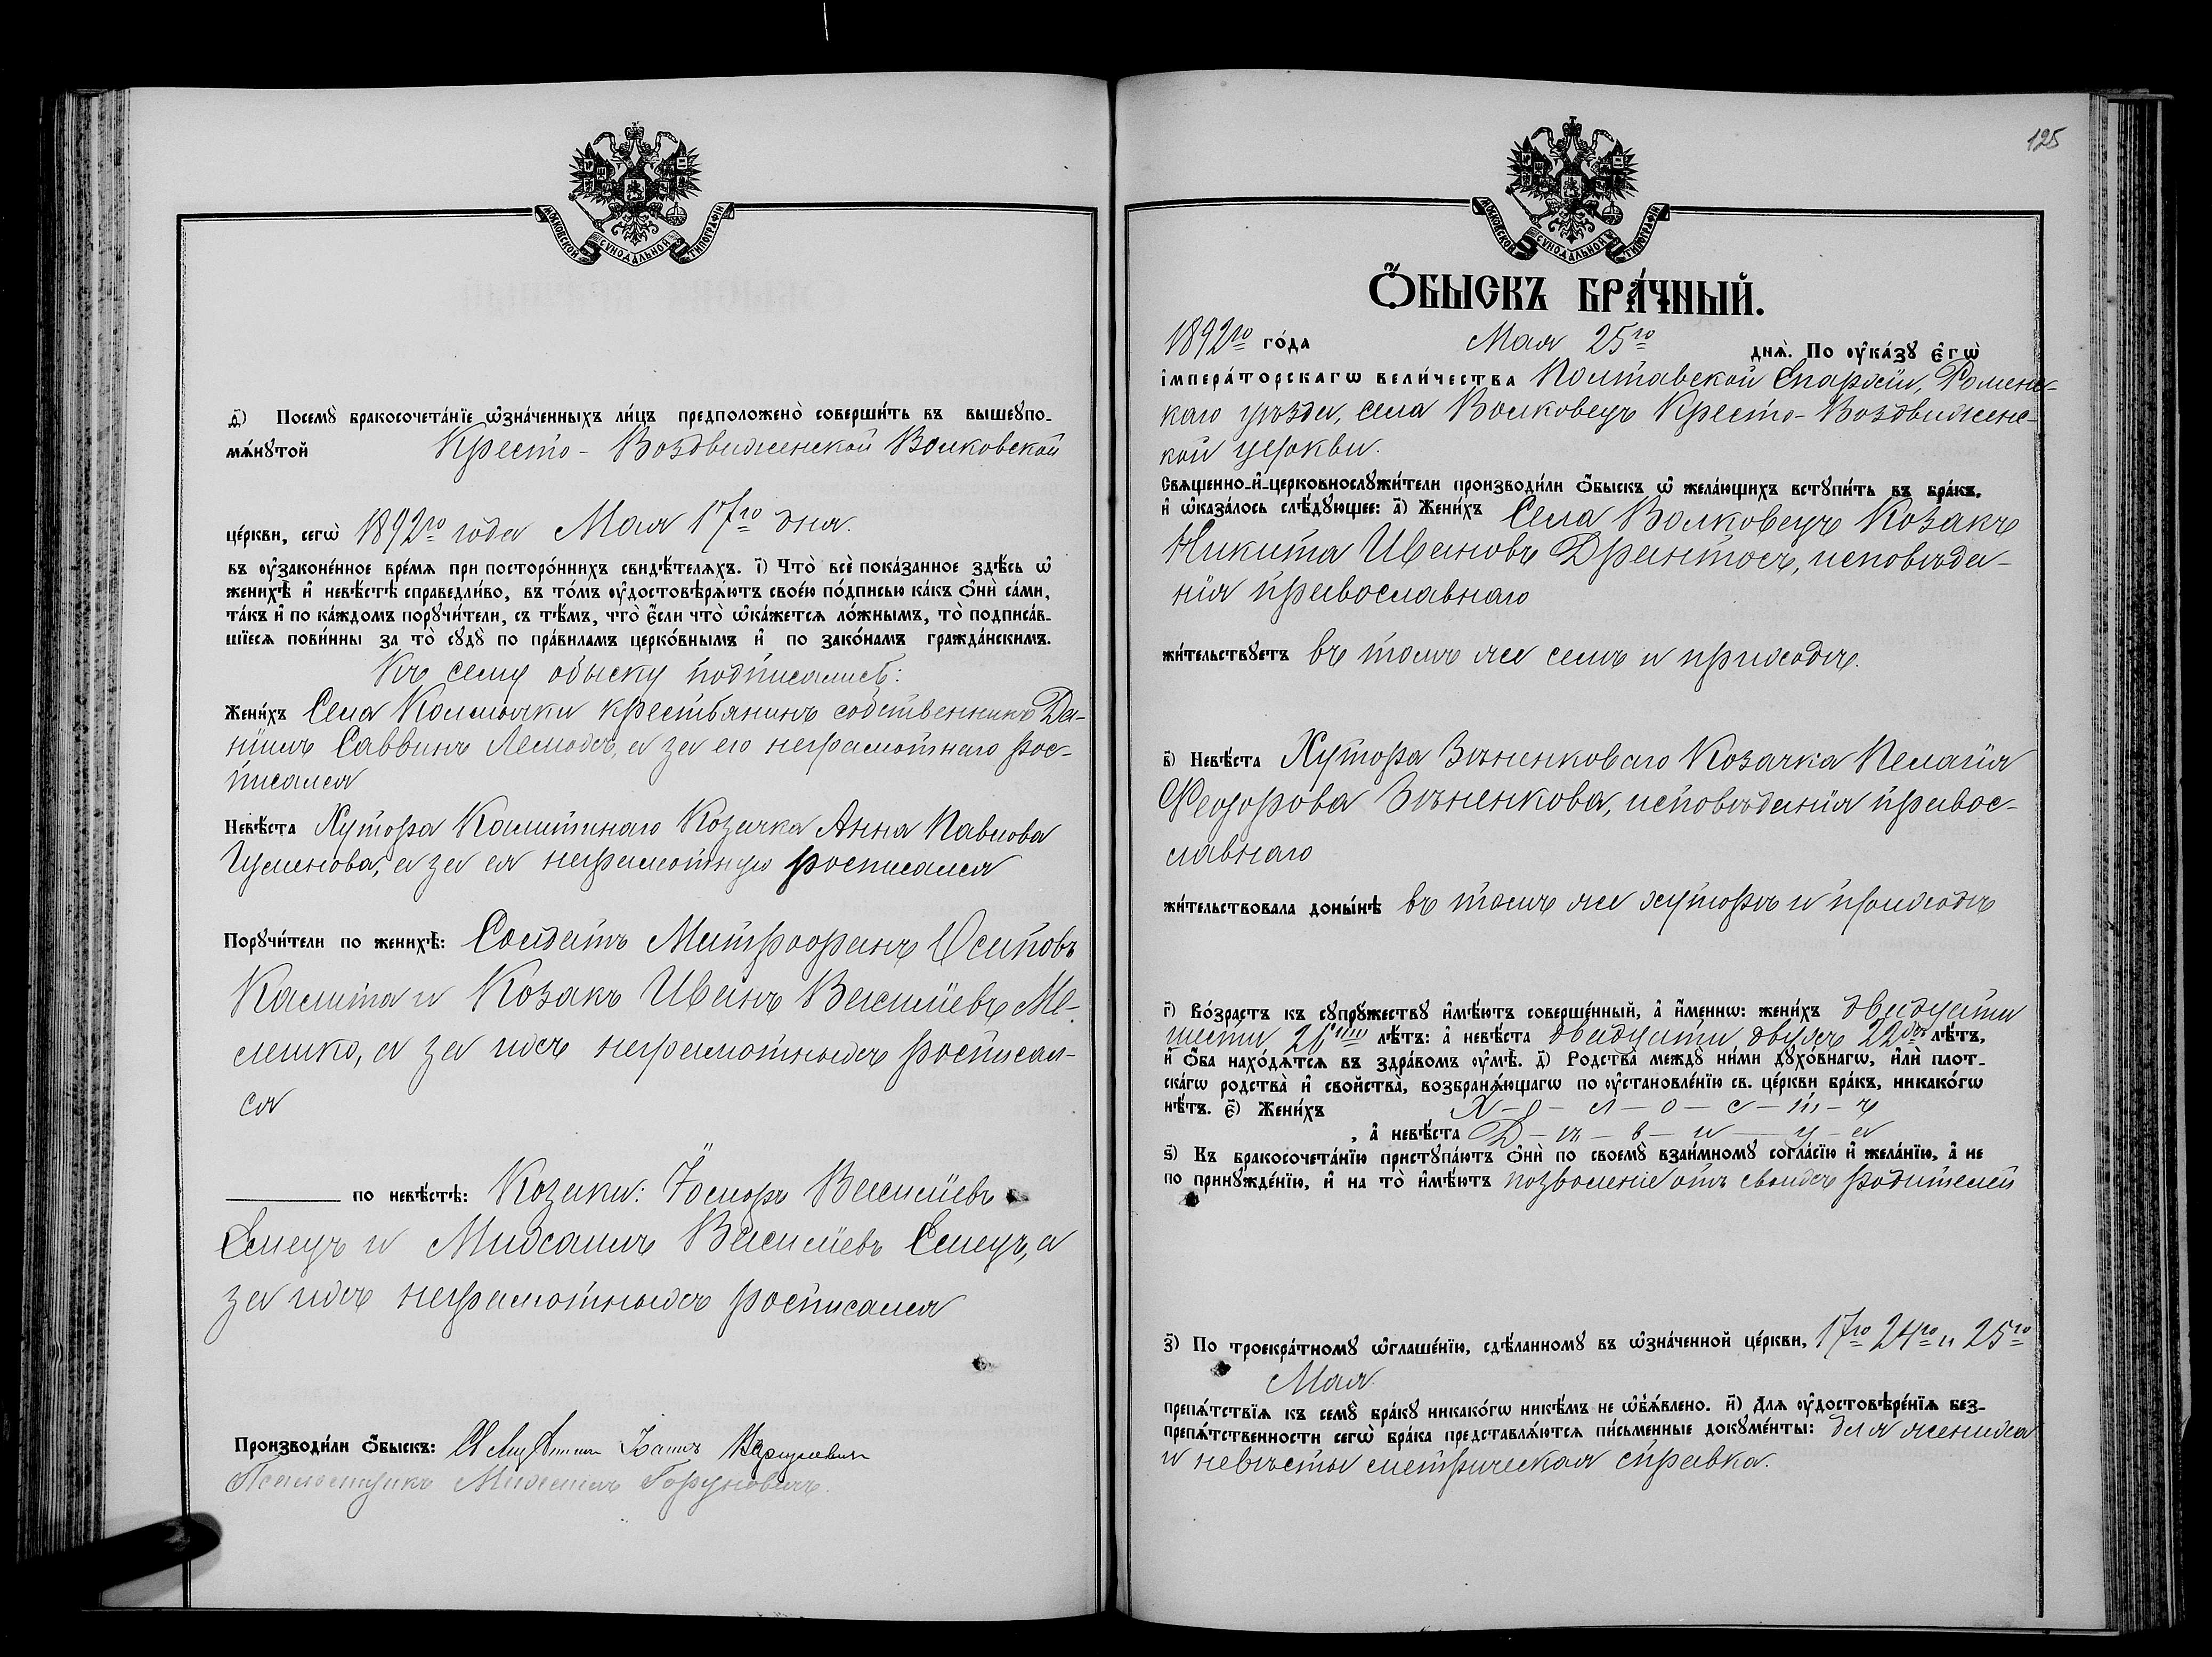 МОСКОВСКОЙ СУНОДАЛЬНОЙ ТИПОГРАФІИ
д҃) Посемꙋ̀ бракосочета́нїе ѡ҆зна́ченныхъ ли́цъ предположено̀ соверши́ть въ вышеꙋпо-
мѧ́нꙋтой Кресто-Воздвиженской Волковской
це́ркви, сегѡ̀ 1892го года Мая 17го дня.
въ ᲂу҆законе́нное вре́мѧ при посторо́ннихъ свидѣ́телѧхъ. і҃) Что̀ всѐ пока́занное здѣ́сь ѡ҆
женихѣ̀ и҆ невѣ́стѣ справедли́во, въ то́мъ ᲂу҆достовѣрѧ́ютъ свое́ю по́дписью ка́къ ѻ҆нѝ са́ми,
та́къ и҆ по ка́ждомъ порꙋчи́тели, съ тѣ́мъ, что̀ є҆́сли что̀ ѡ҆ка́жетсѧ ло́жнымъ, то̀ подписа́в-
шїесѧ пови́нны за то̀ сꙋдꙋ̀ по пра́виламъ церко́внымъ и҆ по зако́намъ гражда́нскимъ.
Къ сему обыску подписались:
Жени́хъ Села Коммычки крестьянинъ собственникъ Да-
ніилъ Саввинъ, а за его неграмотнаго рос-
писался
Невѣ́ста Хутора Калитинаго Козачка Анна Павлова
а за ея неграмотную росписался
Порꙋчи́тели по женихѣ̀: Солдатъ Митрофанъ Осиповъ
Калита и Козакъ Иванъ Васильевъ Ме-
лешко, а за ихъ неграмотныхъ росписал-
ся
по невѣ́стѣ: Козаки: Василіевъ
Семецъ и Михаилъ Василіевъ Семецъ, а
за ихъ неграмотныхъ росписался
Производи́ли ѻ҆́быскъ:
Псаломщикъ Михаилъ Горуновичъ.
125
МОСКОВСКОЙ СУНОДАЛЬНОЙ ТИПОГРАФІИ
Ѻ҆́БЫСКЪ БРА́ЧНЫЙ.
1892го го́да Мая 25го днѧ̀. По ᲂу҆ка́зꙋ є҆гѡ̀
і҆мпера́торскагѡ вели́чества Полтавской Епархіи, Роменс-
каго уѣзда, села Волковецъ Кресто-Воздвиженс-
кой церкви.
Свѧщенно-и҆-церковнослꙋжи́тели производи́ли ѻ҆́быскъ ѡ҆ жела́ющихъ встꙋпи́ть въ бра́къ,
и҆ ѡ҆каза́лось слѣ́дꙋющее: а҃) Жени́хъ Села Волковецъ Козакъ
Никита Ивановъ, исповѣда-
нія православнаго
жи́тельствꙋетъ въ томъ же селѣ и приходѣ.
в҃) Невѣ́ста Хутора Зѣненковаго Козачка Пелагія
Феодорова Зѣненкова, исповѣданія правос-
лавнаго
жи́тельствовала доны́нѣ въ томъ же хуторѣ и приходѣ
г҃) Во́зрастъ къ сꙋпрꙋ́жествꙋ и҆мѣ́ютъ соверше́нный, а҆ и҆́меннѡ: жени́хъ двадцати
шести 26ти лѣ́тъ: а҆ невѣ́ста двадцати двухъ 22хъ лѣ́тъ,
и҆ ѻ҆́ба нахо́дѧтсѧ въ здра́вомъ ᲂу҆мѣ̀. д҃) Родства̀ междꙋ̀ ни́ми дꙋхо́внагѡ, и҆лѝ плот-
ска́гѡ родства̀ и҆ сво́йства, возбранѧ́ющагѡ по ᲂу҆становле́нїю св. це́ркви бра́къ, никако́гѡ
нѣ́тъ. є҃) Жени́хъ Х-о-л-о-с-т-ъ
, а҆ невѣ́ста Д-ѣ-в-и-ц-а
ѕ҃) Къ бракосочета́нїю пристꙋпа́ютъ ѻ҆нѝ по своемꙋ̀ взаи́мномꙋ согла́сїю и҆ жела́нїю, а҆ не
по принꙋжде́нїю, и҆ на то̀ и҆мѣ́ютъ позволеніе отъ своихъ родителей
з҃) По троекра́тномꙋ ѡ҆глаше́нїю, сдѣ́ланномꙋ въ ѡ҆зна́ченной це́ркви, 17го 24го и 25го
Мая.
препѧ́тствїѧ къ семꙋ̀ бра́кꙋ никако́гѡ никѣ́мъ не ѡ҆б̾ѧ́влено. и҃) Длѧ ᲂу҆достовѣре́нїѧ без-
препѧ́тственности сегѡ̀ бра́ка представлѧ́ютсѧ пи́сьменные докꙋме́нты: для жениха
и невѣсты метрическая справка.